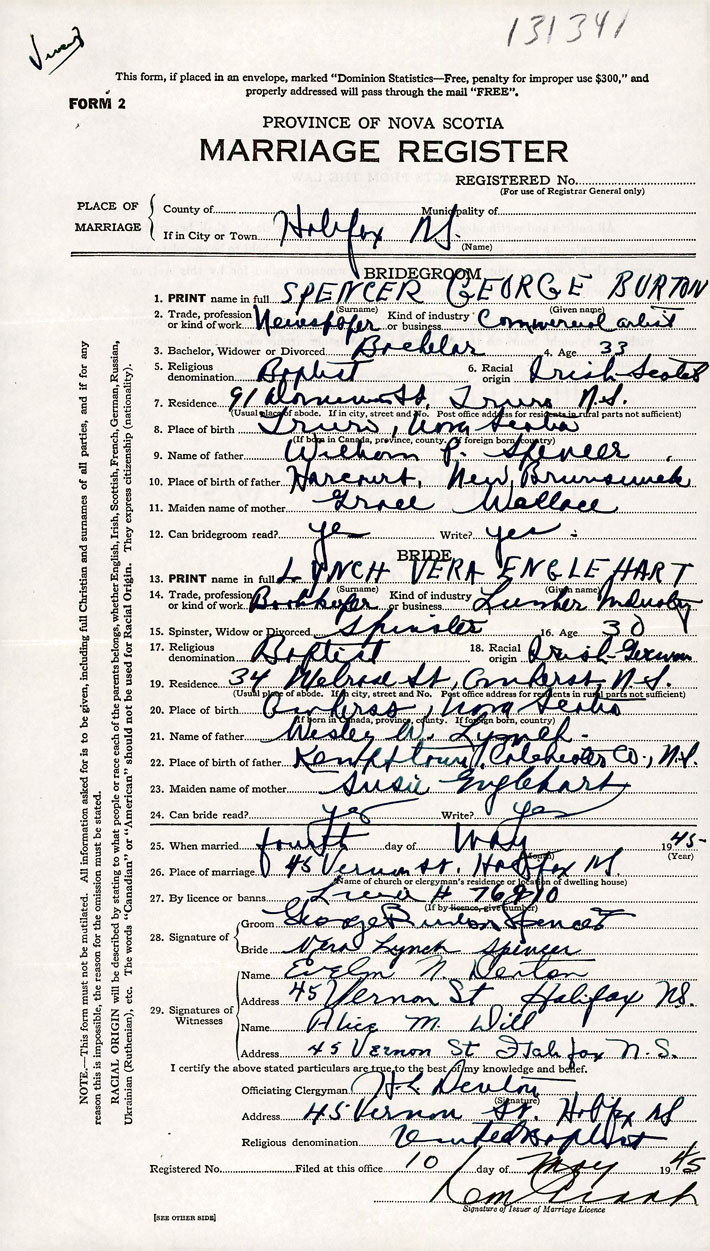 131341
This form, if placed in an envelope, marked "Dominion Statistics—Free, penalty for improper use $300," and
properly addressed will pass through the mail "FREE".
FORM 2
PROVINCE OF NOVA SCOTIA
MARRIAGE REGISTER
REGISTERED No.
(For use of Registrar General only)
PLACE OF MARRIAGE
County of Municipality of
If in City or Town Halifax N.S.
(Name)
BRIDEGROOM
1. PRINT name in full SPENCER GEORGE BURTON
(Surname) (Given name)
2. Trade, profession or kind of work Newspaper Kind of industry or business Commercial artist
3. Bachelor, Widower or Divorced Bachelor 4. Age 33
5. Religious denomination Baptist 6. Racial origin Irish Scotch
7. Residence 91 St, Truro N.S.
(Usual place of abode. If in city, street and No. Post office address for residents in rural parts not sufficient)
8. Place of birth Truro, Nova Scotia
(If born in Canada, province, county. If foreign born, country)
9. Name of father William P. Spencer
10. Place of birth of father Harcourt, New Brunswick
11. Maiden name of mother Grace Wallace
12. Can bridegroom read? yes Write? yes
BRIDE
13. PRINT name in full LYNCH VERA ENGLEHART
(Surname) (Given name)
14. Trade, profession or kind of work Bookkeeper Kind of industry or business Lumber Industry
15. Spinster, Widow or Divorced Spinster 16. Age 30
17. Religious denomination Baptist 18. Racial origin Irish-German
19. Residence 34 Melrose St, Amherst, N.S.
(Usual place of abode. If in city, street and No. Post office address for residents in rural parts not sufficient)
20. Place of birth Amherst, Nova Scotia
(If born in Canada, province, county. If foreign born, country)
21. Name of father Wesley W. Lynch
22. Place of birth of father Kempttown, Colchester Co., N.S.
23. Maiden name of mother Susie Englehart
24. Can bride read? yes Write? yes
25. When married fourth day of May 1945
(Month) (Year)
26. Place of marriage 45 Vernon St. Halifax N.S.
(Name of church or clergyman's residence or location of dwelling house)
27. By licence or banns
(If by licence, give number)
28. Signature of
Groom George Burton Spencer
Bride Vera Lynch Spencer
29. Signatures of Witnesses
Name Evelyn N. Denton
Address 45 Vernon St Halifax N.S.
Name Alice M. Dill
Address 45 Vernon St Halifax N.S.
I certify the above stated particulars are true to the best of my knowledge and belief.
Officiating Clergyman H L Denton
(Signature)
Address 45 Vernon St. Halifax N S
Religious denomination United Baptist
Registered No. Filed at this office 10 day of May 1945
Signature of Issuer of Marriage Licence
[SEE OTHER SIDE]
NOTE.—This form must not be mutilated. All information asked for is to be given, including full Christian and surnames of all parties, and if for any
reason this is impossible, the reason for the omission must be stated.
RACIAL ORIGIN will be described by stating to what people or race each of the parents belongs, whether English, Irish, Scottish, French, German, Russian,
Ukrainian (Ruthenian), etc. The words "Canadian" or "American" should not be used for Racial Origin. They express citizenship (nationality).